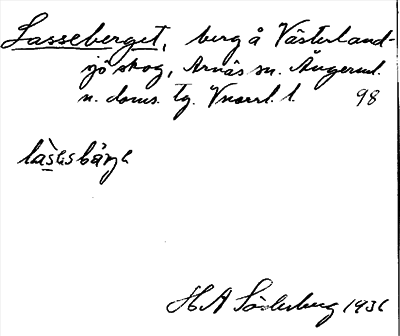 Lasseberget, berg å Västerland-
sjö skog, Arnäs sn. Ångerml.
n. doms. tg. Vnorrl. l. 98
H A Söderberg 1936